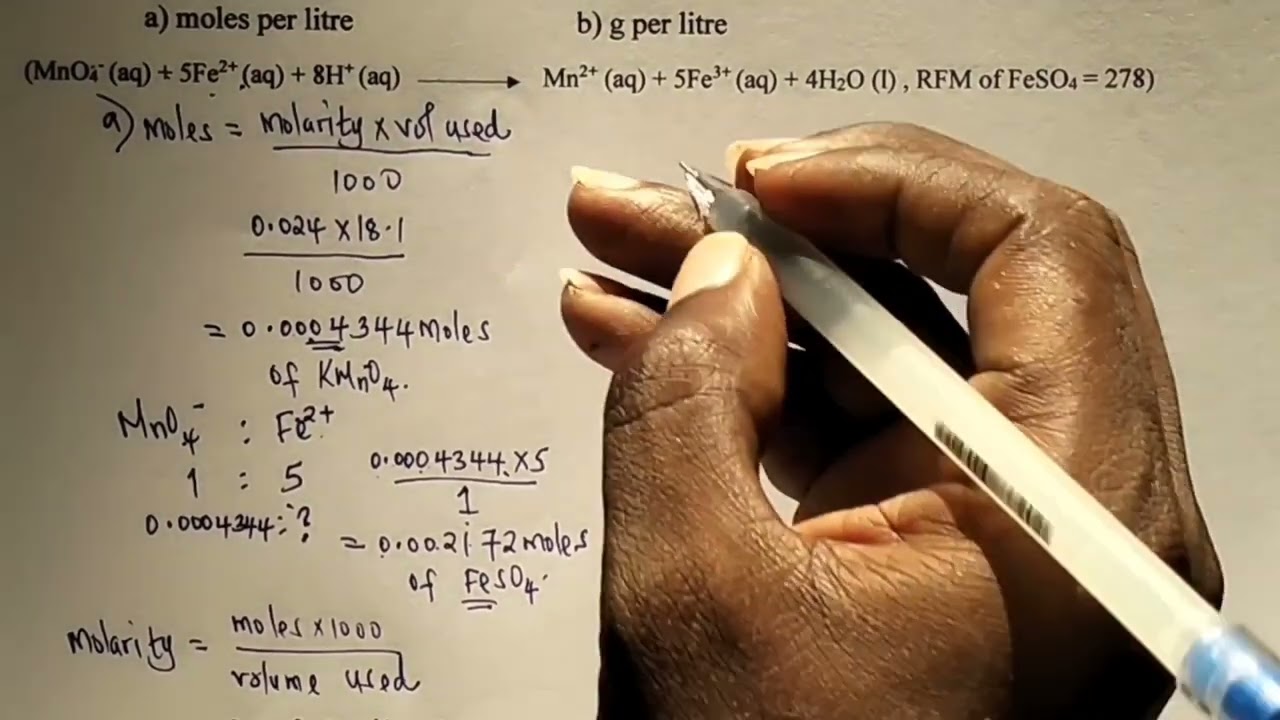 a) moles per litre b) g per litre
(MnO₄⁻ (aq) + 5Fe²⁺ (aq) + 8H⁺ (aq) ⟶ Mn²⁺ (aq) + 5Fe³⁺ (aq) + 4H₂O (l) , RFM of FeSO₄ = 278)
a) moles = molarity x vol used
1000
0.024 x 18.1
1000
= 0.0004344 Moles
of KMnO₄.
MnO₄⁻ : Fe²⁺
1 : 5
0.0004344 : ?
0.0004344 x 5
1
= 0.002172 moles
of FeSO₄.
Molarity = moles x 1000
volume used